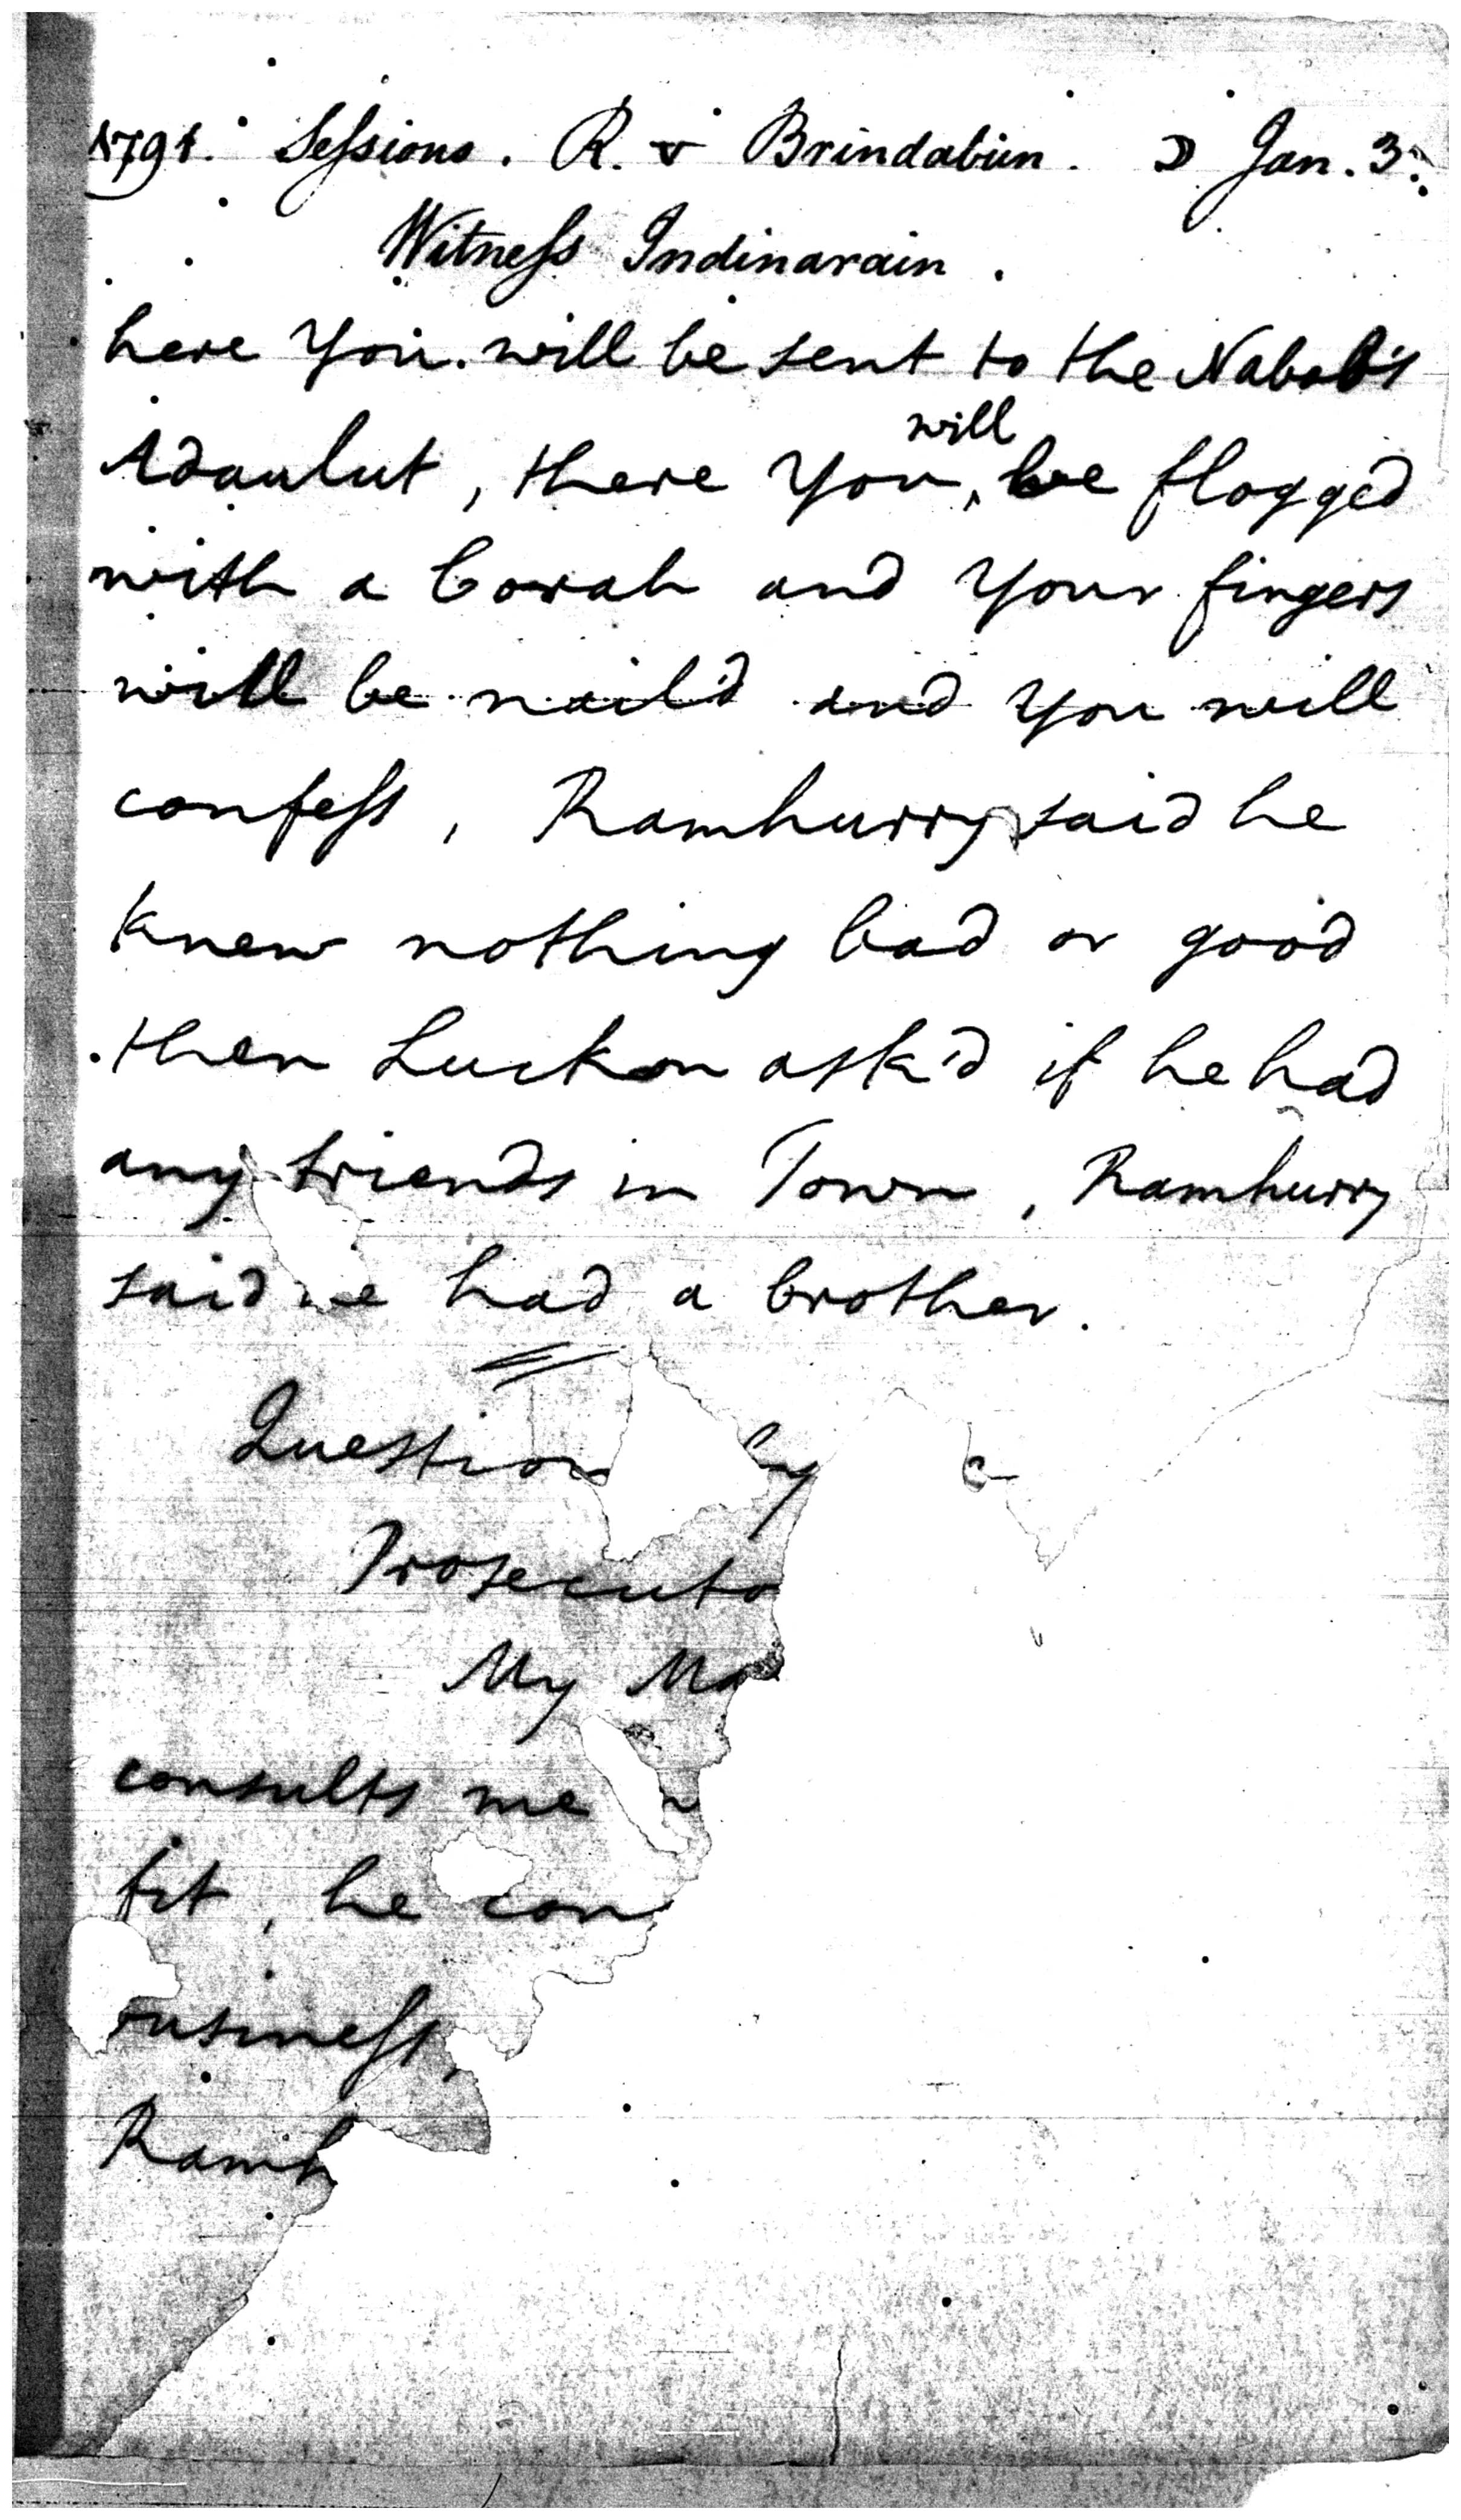 1791. Sessions. R. v Brindabun. ☽ Jan. 3.
Witness Indinarain.
here You will be sent to the Nabob's
will
Adaulut, there You, be flogged
with a Corah and Your fingers
will be nail'd and You will
confess, Ramhurry said he
knew nothing bad or good
then Luckon ask'd if he had
any friends in Town, Ramhurry
said he had a brother.
Question by
Prosecuto
My Ma
consults me
fit, he con
usiness,
Ramh